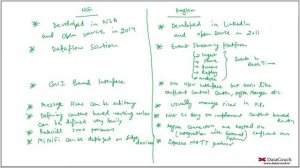 NiFi
* Developed in NSA
and open source in 2014
* Dataflow Solution
* GUI Based Interface
* Message sizes can be arbitrary
* Defining content based routing rules
can be defined very easily
* Prebuilt 300+ processors
* MiNiFi can be deployed on Edge devices
Kafka
* Developed in LinkedIn
and open source in 2011
* Event Streaming platform
Ingest
Store
Process
Replay
Analysis
Events in
Real-Time
* No user interface but tools like
confluent control center,
* Usually message sizes in KB
* Not so Easy to implement content based
routing
* connectors are tested on
integration with Confluent
* Expose MQTT protocol
DataCouch